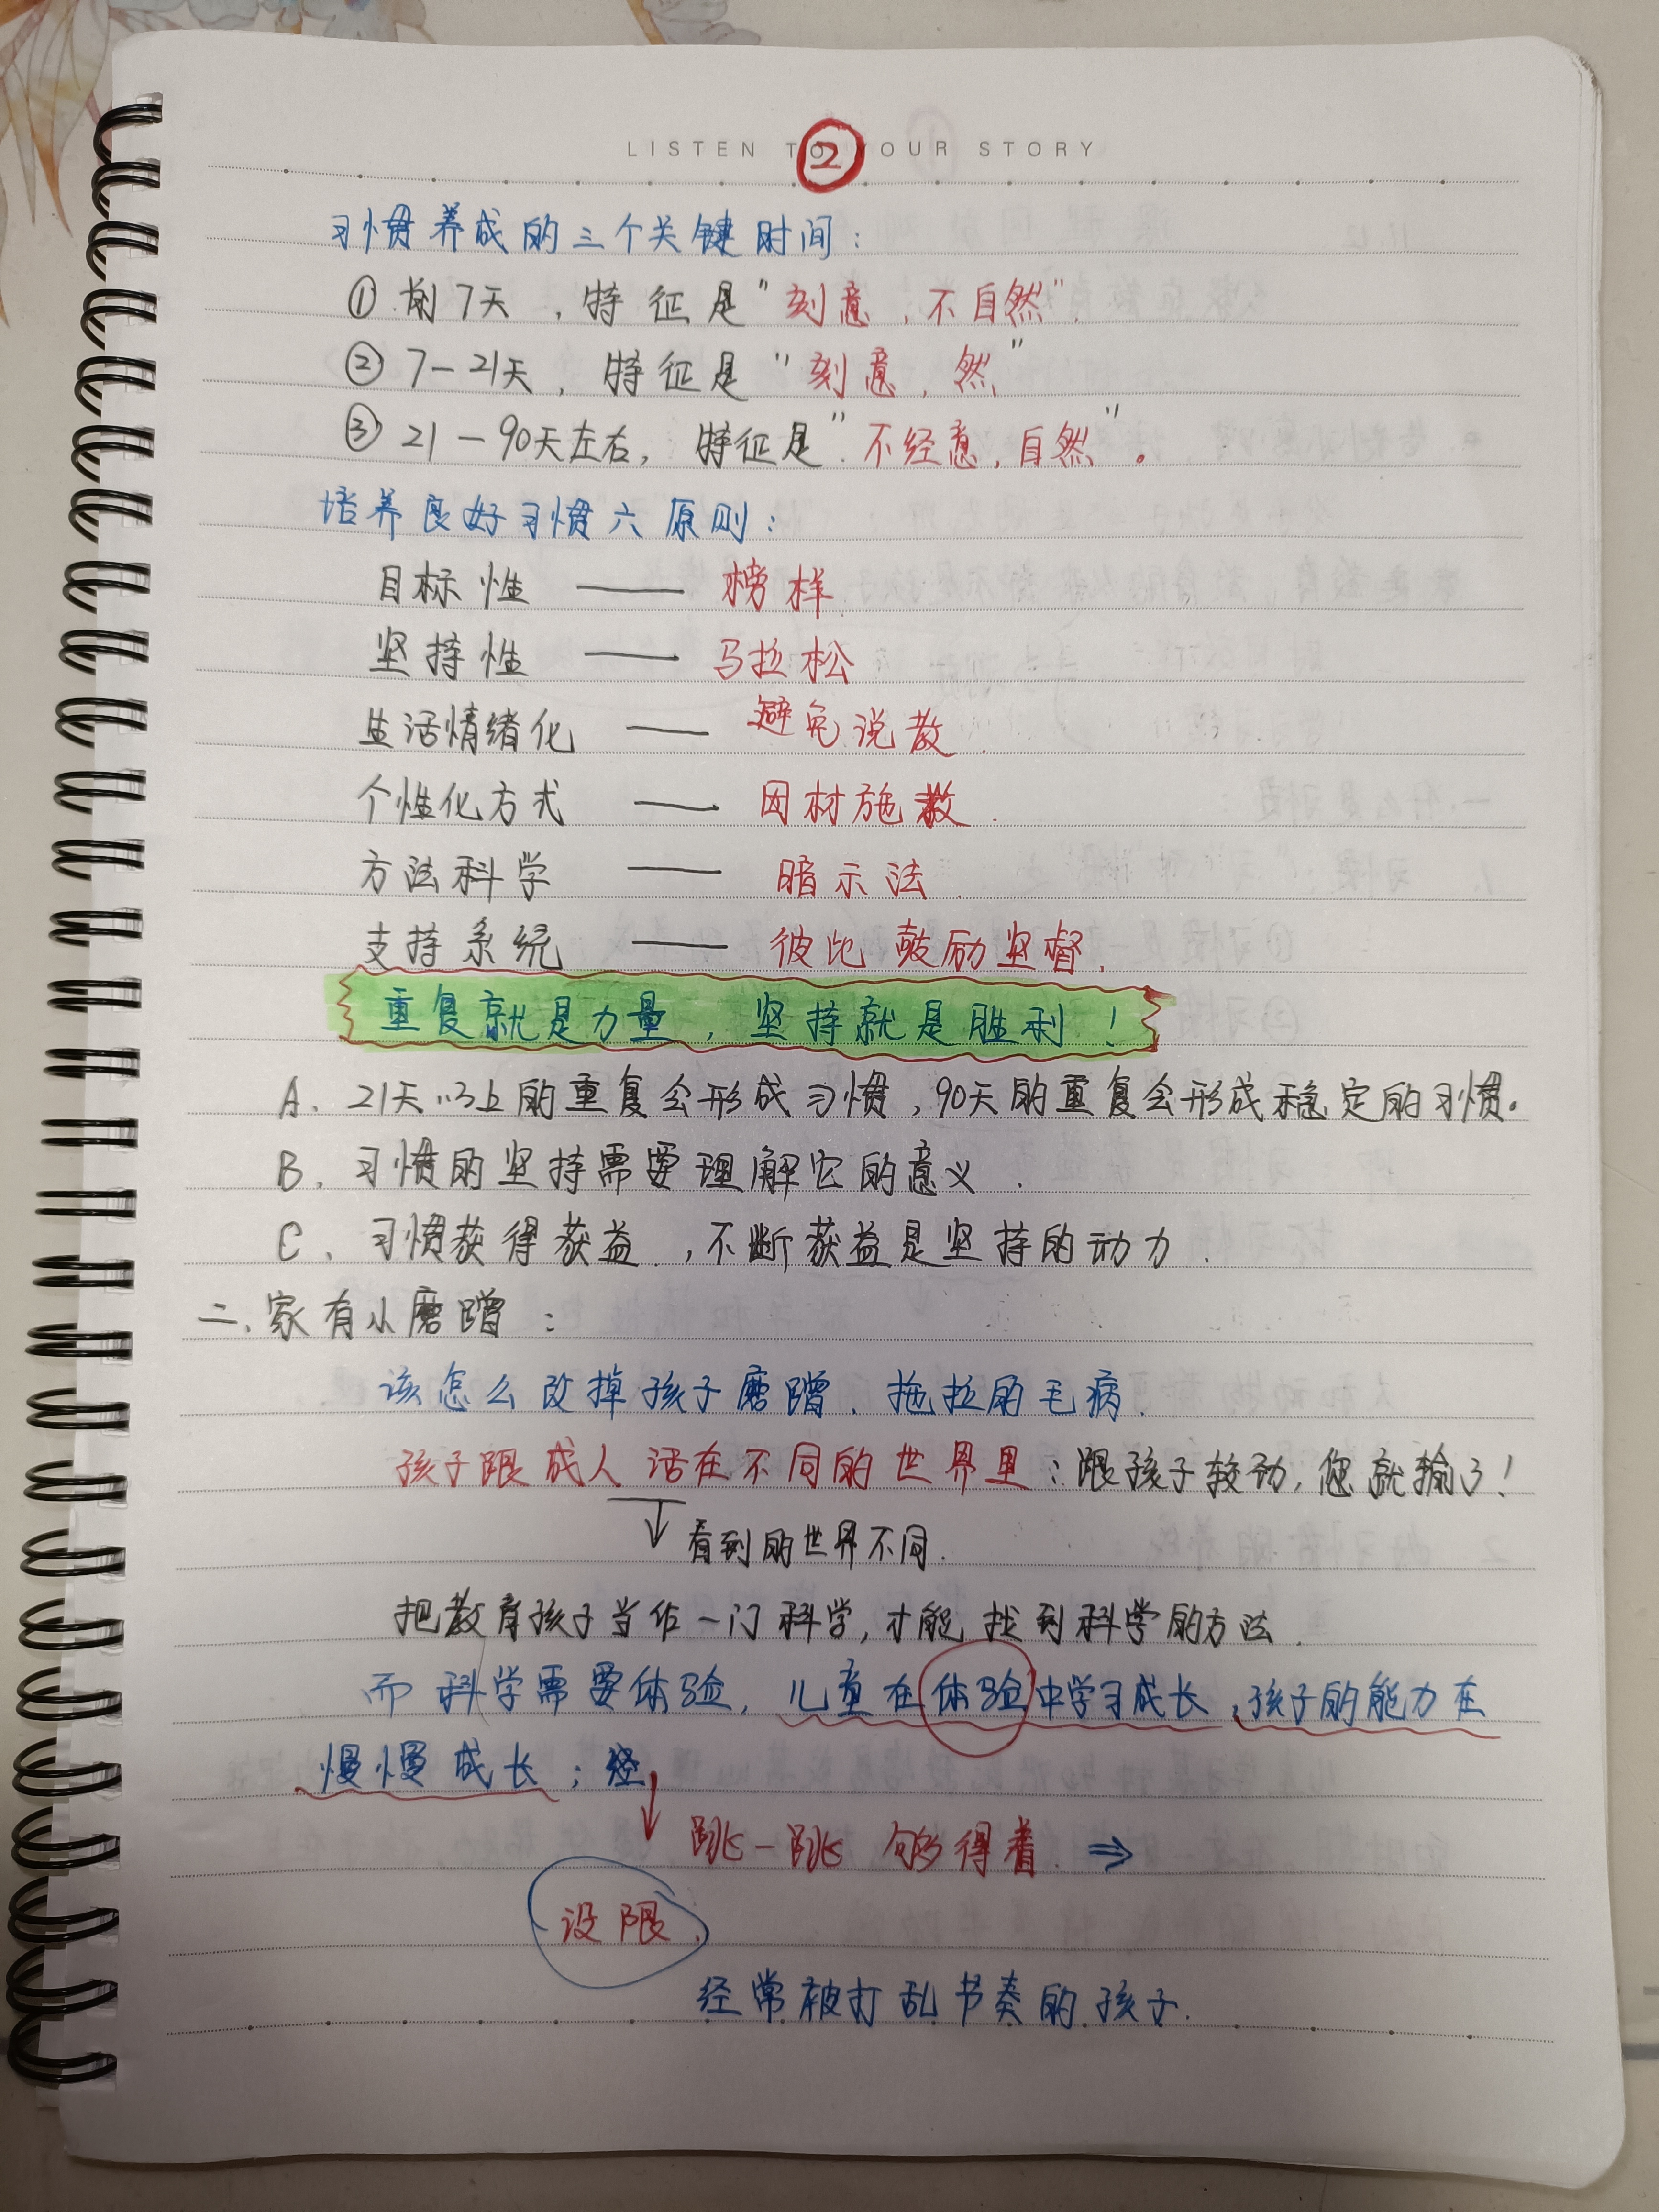 LISTEN TO YOUR STORY
②
习惯养成的三个关键时间：
①前7天，特征是"刻意，不自然"．
②7—21天，特征是"刻意，然"
③21—90天左右，特征是"不经意，自然"。
培养良好习惯六原则：
目标性 —— 榜样
坚持性 —— 马拉松
生活情绪化 —— 避免说教．
个性化方式 —— 因材施教．
方法科学 —— 暗示法．
支持系统 —— 彼此鼓励坚督．
重复就是力量，坚持就是胜利！
A、21天以上的重复会形成习惯，90天的重复会形成稳定的习惯。
B、习惯的坚持需要理解它的意义．
C、习惯获得获益．，不断获益是坚持的动力．
二、家有小磨蹭：
该怎么改掉孩子磨蹭、拖拉的毛病．
孩子跟成人活在不同的世界里：跟孩子较劲，您就输了！
↓看到的世界不同．
把教育孩子当作一门科学，才能找到科学的方法．
而科学需要体验，儿童在体验中学习成长，孩子的能力在
慢慢成长；
↓跳一跳 够得着．⇒
设限．
经常被打乱节奏的孩子．